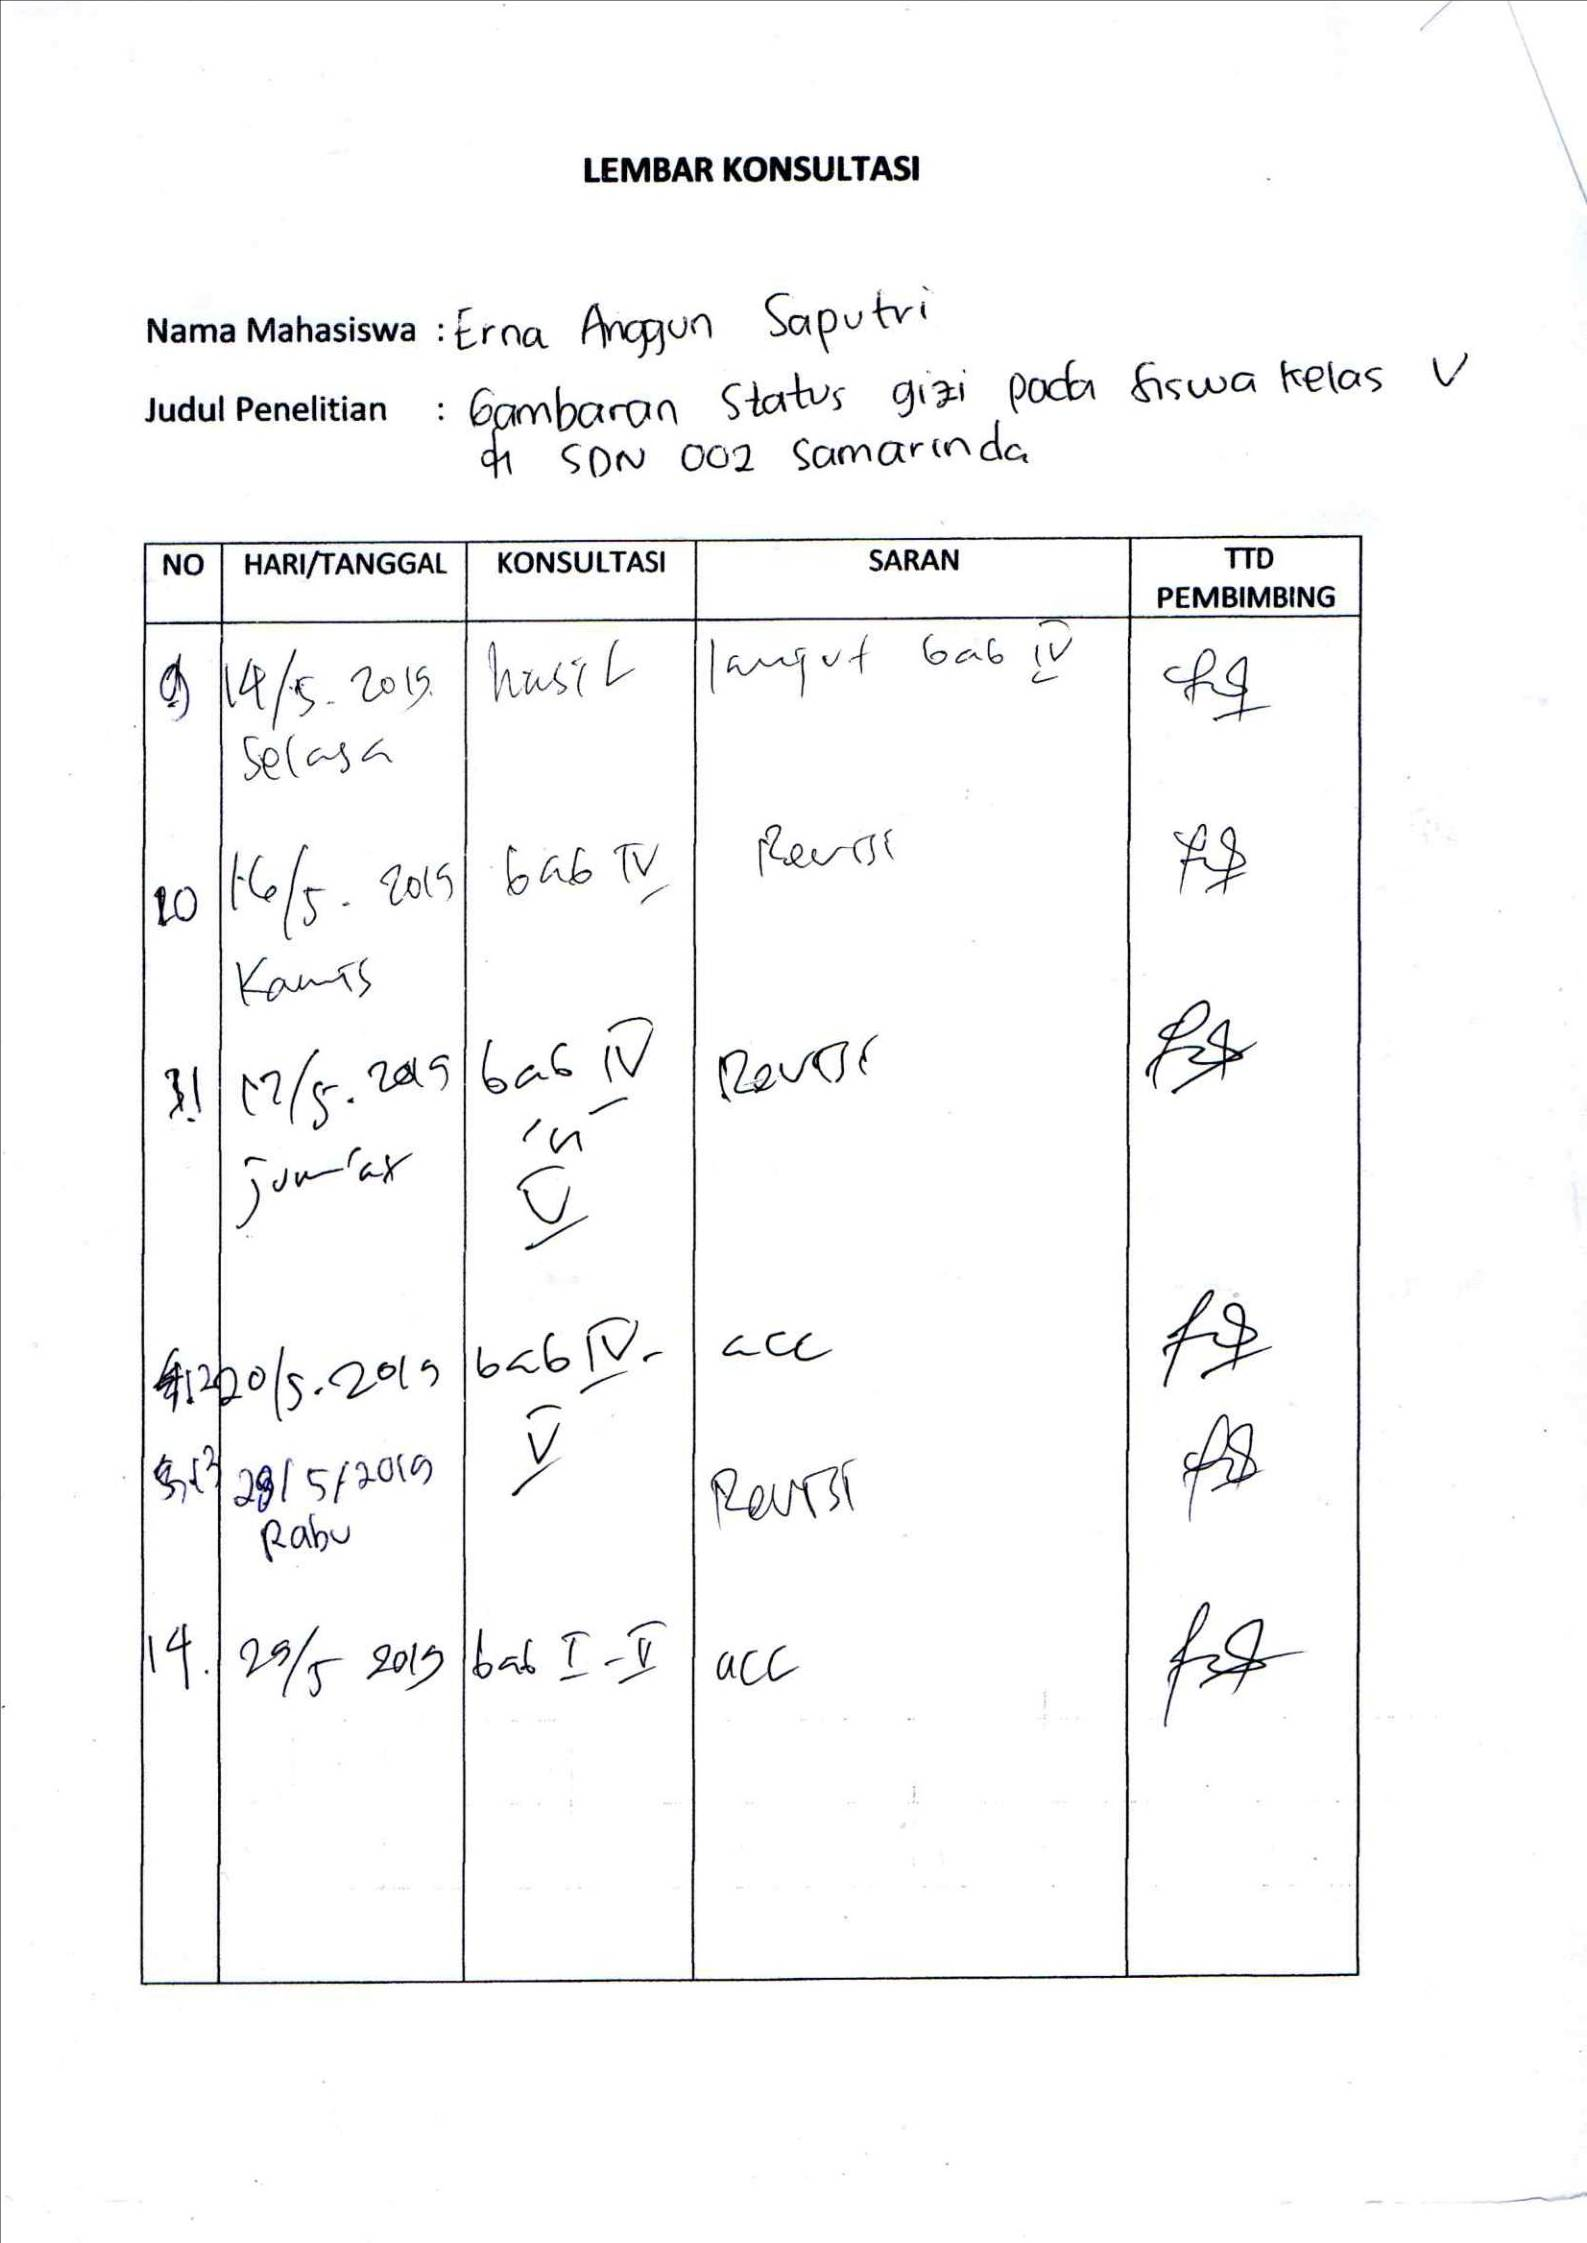 LEMBAR KONSULTASI
Nama Mahasiswa : Erna Anggun Saputri
Judul Penelitian : Gambaran Status gizi pada siswa kelas V
di SDN 002 Samarinda
NO HARI/TANGGAL KONSULTASI SARAN TTD
PEMBIMBING
9 14/5. 2019 hasil lanjut bab IV
Selasa
10 16/5. 2019 bab IV Revisi
Kamis
11 17/5. 2019 bab IV Revisi
jum'at
V
12 20/5. 2019 bab IV - acc
V
13 29/5/2019 Revisi
Rabu
14. 29/5 2019 bab I - V acc